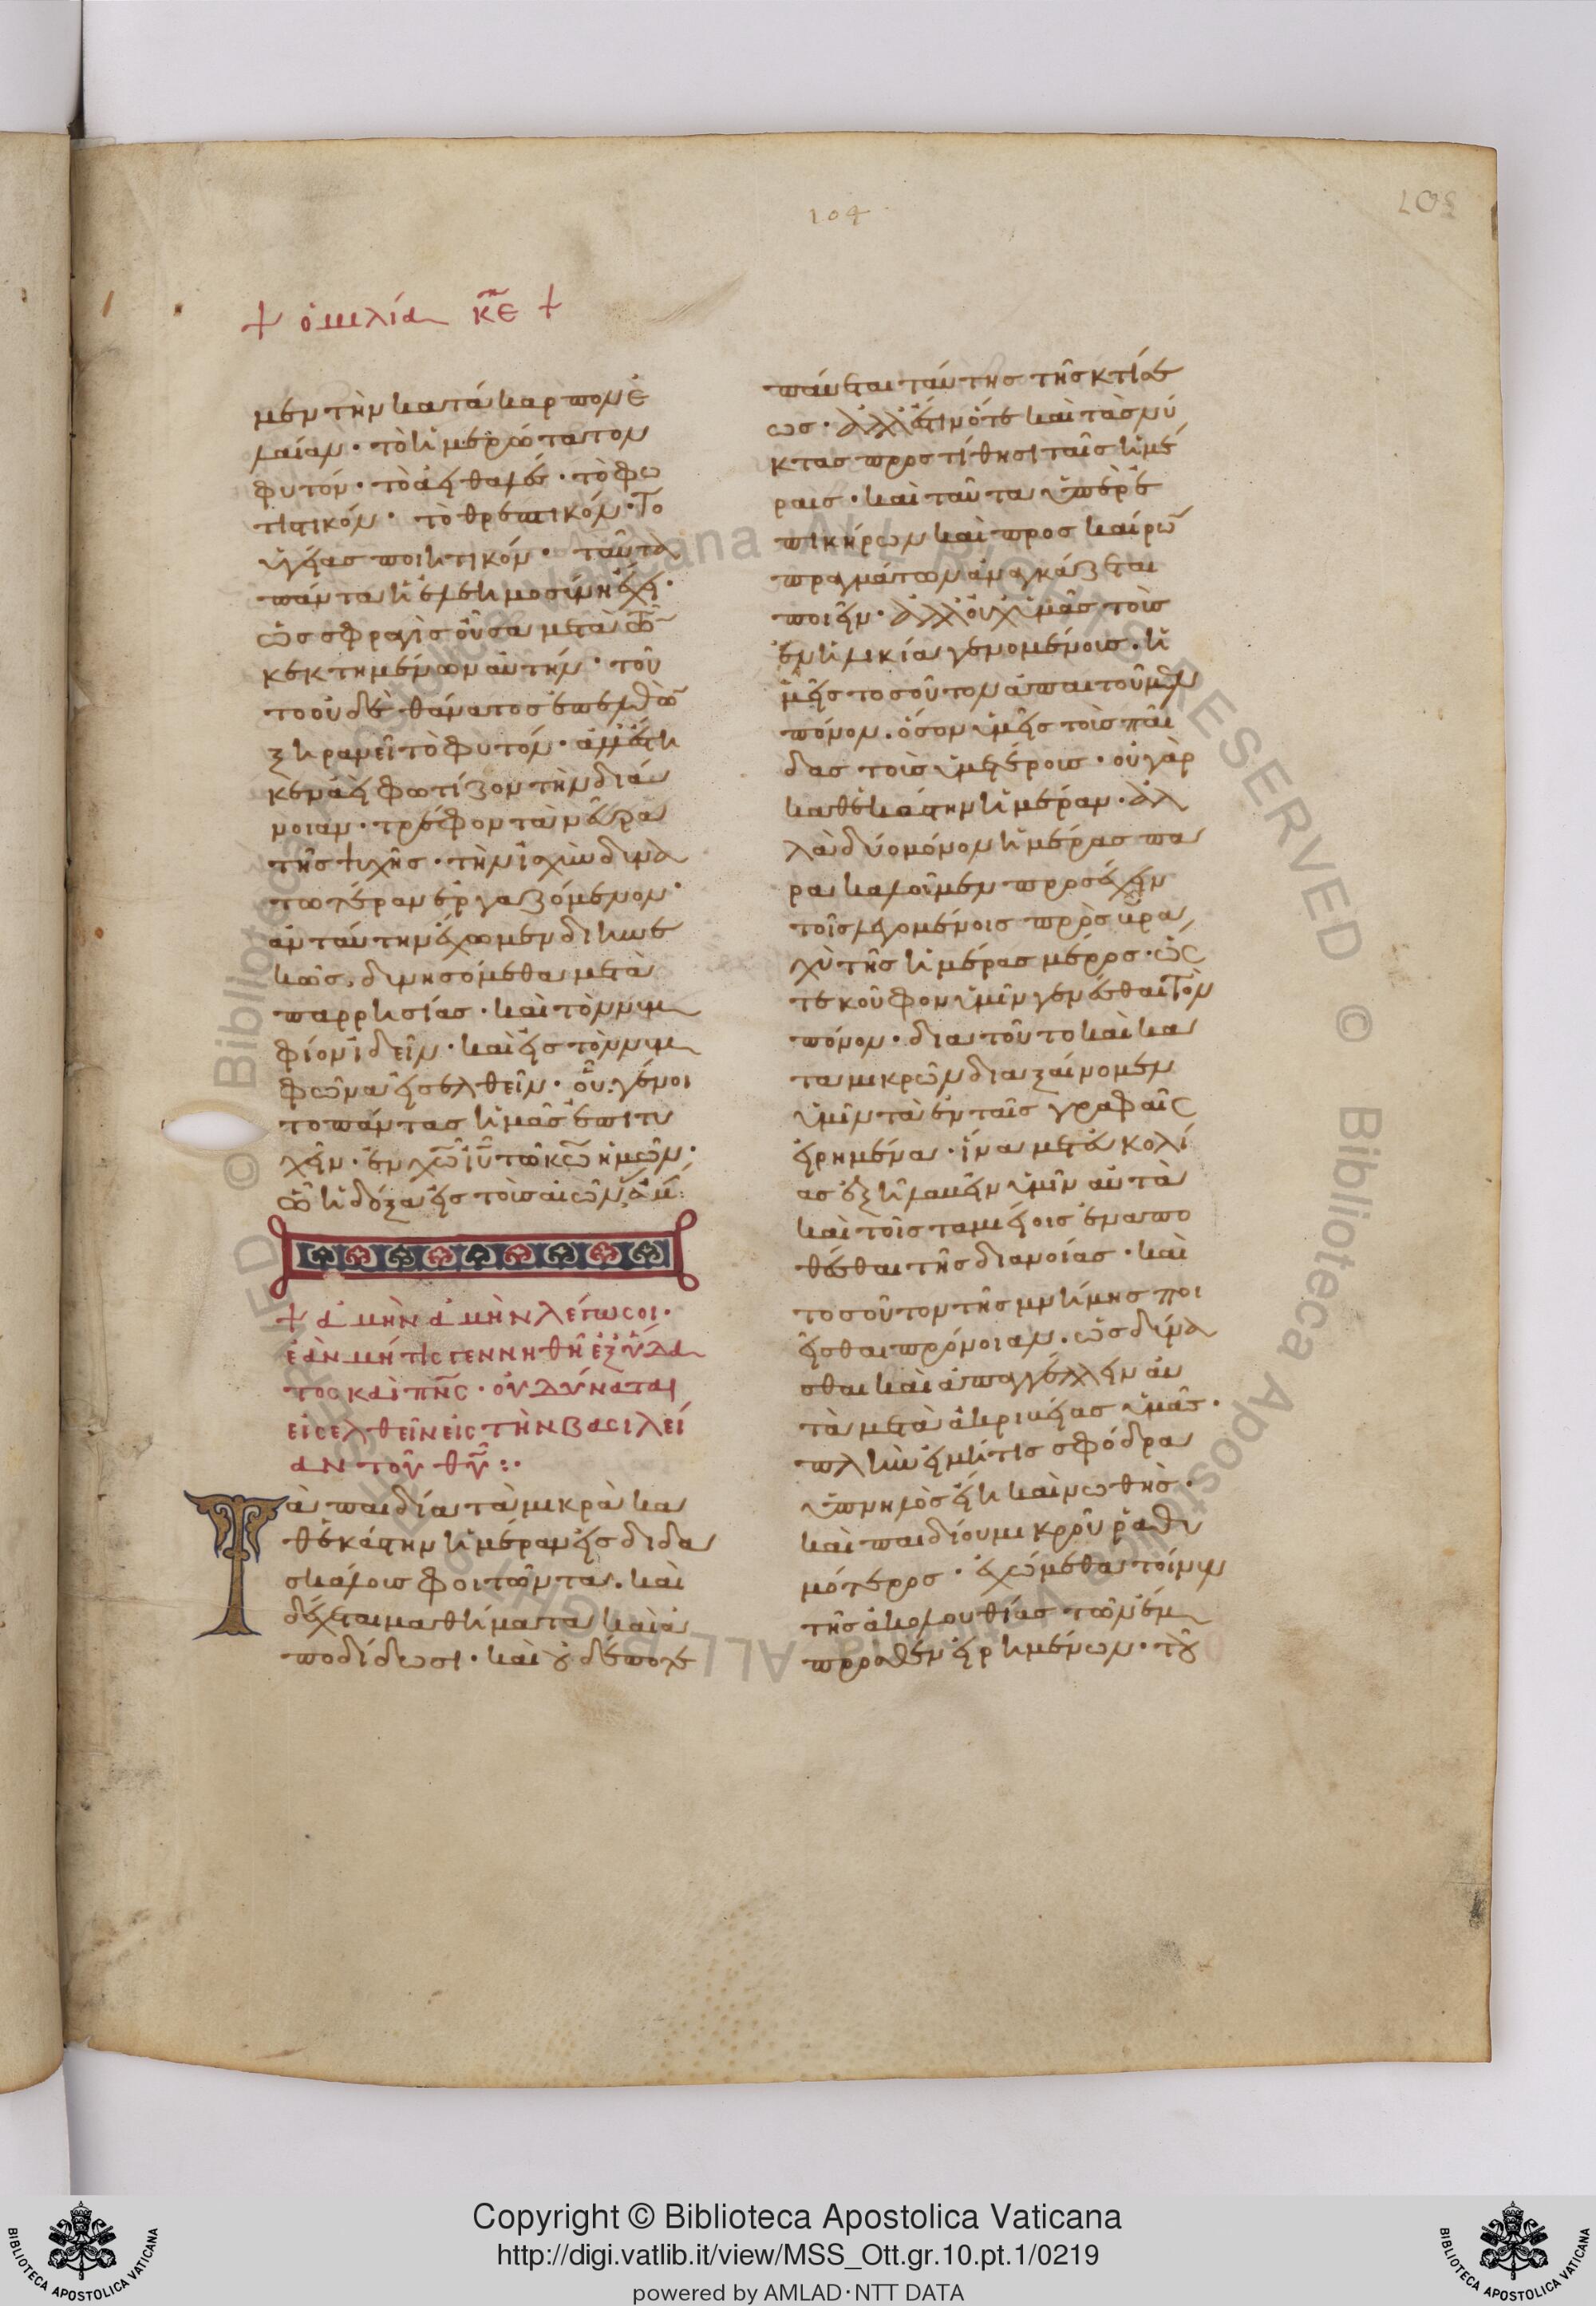 104
105
+ ὁμιλία κ̅ε̅ +
μεν τὴν κατάκαρπον ἐ
λαίαν · τὸ ἡμερώτατον
φυτόν · τὸ ἀειθαλές · τὸ φω
τιστικόν · τὸ θρεπτικόν · τὸ
ὑγείας ποιητικόν · ταῦτα
πάντα ἡ ἐλεημοσύνη ἔχει ·
ὡς σφραγὶς οὖσα μετὰ τῶν
κεκτημένων αὐτήν · τοῦ
το οὐδὲ θάνατος ἐπελθὼν
ξηραμεῖ τὸ φυτόν · ἀλλ' ἔστη
κεν ἀεὶ φωτίζον τὴν διά
νοιαν · τρέφον τὰ νεῦρα
τῆς ψυχῆς · τὴν ἰσχὺν δυνα
τωτέραν ἐργαζόμενον ·
ἂν ταύτην ἔχωμεν διηνε
κῶς, δυνησόμεθα μετὰ
παρρησίας · καὶ τὸν νυμ
φίον ἰδεῖν · καὶ εἰς τὸν νυμ
φῶνα εἰσελθεῖν · οὗ γένοι
το πάντας ἡμᾶς ἐπιτυ
χεῖν · ἐν χω ιυ τῶ κω ἡμῶν ·
ὧ ἡ δόξα εἰς τοὺς αἰῶν, ἀμ :
+ ἀμὴν ἀμὴν λέγω σοι ·
ἐὰν μή τις γεννηθῆ ἐξ ὕδα
τος καὶ πνς · οὐ δύναται
εἰσελθεῖν εἰς τὴν βασιλεί
αν τοῦ θυ :·
Τὰ παιδία τὰ μικρὰ κα
θ' ἑκάστην ἡμέραν εἰς διδα
σκάλους φοιτῶντα · καὶ
δέχεται μαθήματα καὶ ἀ
ποδίδωσι · καὶ οὐδέποτε
παύεται ταύτης τῆς κτίσε
ως · ἀλλ' ἔστιν ὅτε καὶ τὰς νύ
κτας προστίθησι ταῖς ἡμέ
ραις · καὶ ταῦτα ὑπὲρ ἐ
πικήρων καὶ προσκαίρων
πραγμάτων ἀναγκάζεται
ποιεῖν · ἀλλ' οὐχ ὑμᾶς τοὺς
ἐν ἡλικία γενομένους · ἡ
μεῖς τοσοῦτον ἀπαιτοῦμεν
πόνον · ὅσον ὑμεῖς τοὺς παῖ
δας τοὺς ὑμετέρους · οὐ γὰρ
καθ' ἑκάστην ἡμέραν · ἀλ
λὰ δύο μόνον ἡμέρας πα
ρακαλοῦμεν προσέχειν
τοῖς λεγομένοις πρὸς βρα
χὺ τῆς ἡμέρας μέρος · ὥς
τε κοῦφον ὑμῖν γενέσθαι τὸν
πόνον · δια τοῦτο καὶ κα
τα μικρῶν διαξαίνομεν
ὑμῖν τὰ ἐν ταῖς γραφαῖς
εἰρημένα · ἵνα μετ' εὐκολί
ας ἐξῆ λαβεῖν ὑμῖν αὐτὰ
καὶ τοῖς ταμιείοις ἐναπο
θέσθαι τῆς διανοίας · καὶ
τοσοῦτον τῆς μνήμης ποι
εῖσθαι πρόνοιαν · ὡς δύνα
σθαι καὶ ἀπαγγέλλειν αὐ
τὰ μετὰ ἀκριβείας ὑμᾶς ·
πλὴν εἰ μή τις σφόδρα
ὑπνηλὸς εἴη καὶ νωθὴς ·
καὶ παιδίου μικροῦ ῥαθυ
μότερος · ἐχώμεθα τοίνυν
τῆς ἀκολουθίας τῶν ἔμ
προσθεν εἰρημένων · τοῦ
Copyright © Biblioteca Apostolica Vaticana
http://digi.vatlib.it/view/MSS_Ott.gr.10.pt.1/0219
powered by AMLAD·NTT DATA
BIBLIOTECA APOSTOLICA VATICANA
BIBLIOTECA APOSTOLICA VATICANA